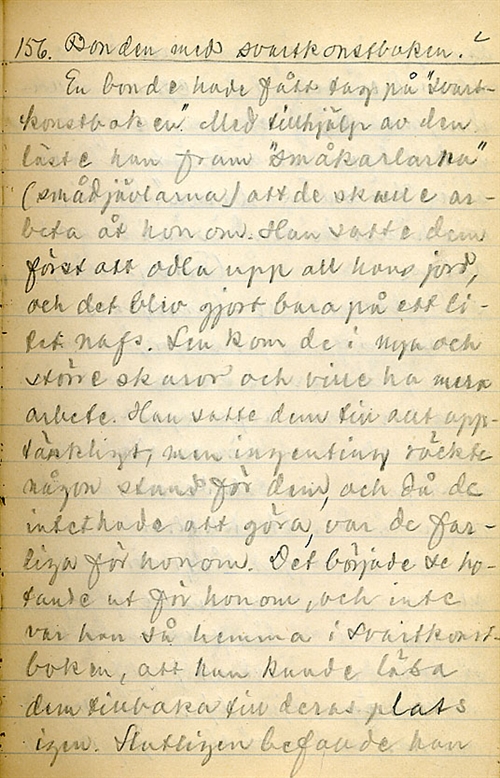 156. Bonden med svartkonstboken.
En bonde hade fått tag på "svart-
konstboken". Med tillhjälp av den
läste han fram "småkarlarna"
(smådjävlarna) att de skulle ar-
beta åt honom. Han satte dem
först att odla upp all hans jord,
och det blev gjort bara på ett li-
tet nafs. Sen kom de i nya och
större skaror och ville ha mera
arbete. Han satte dem till allt upp-
tänkligt, men ingenting räckte
någon stund för dem, och då de
intet hade att göra, var de far-
liga för honom. Det började se ho-
tande ut för honom, och inte
var han så hemma i svartkonst-
boken, att han kunde läsa
dem tillbaka till deras plats
igen. Slutligen befallde han